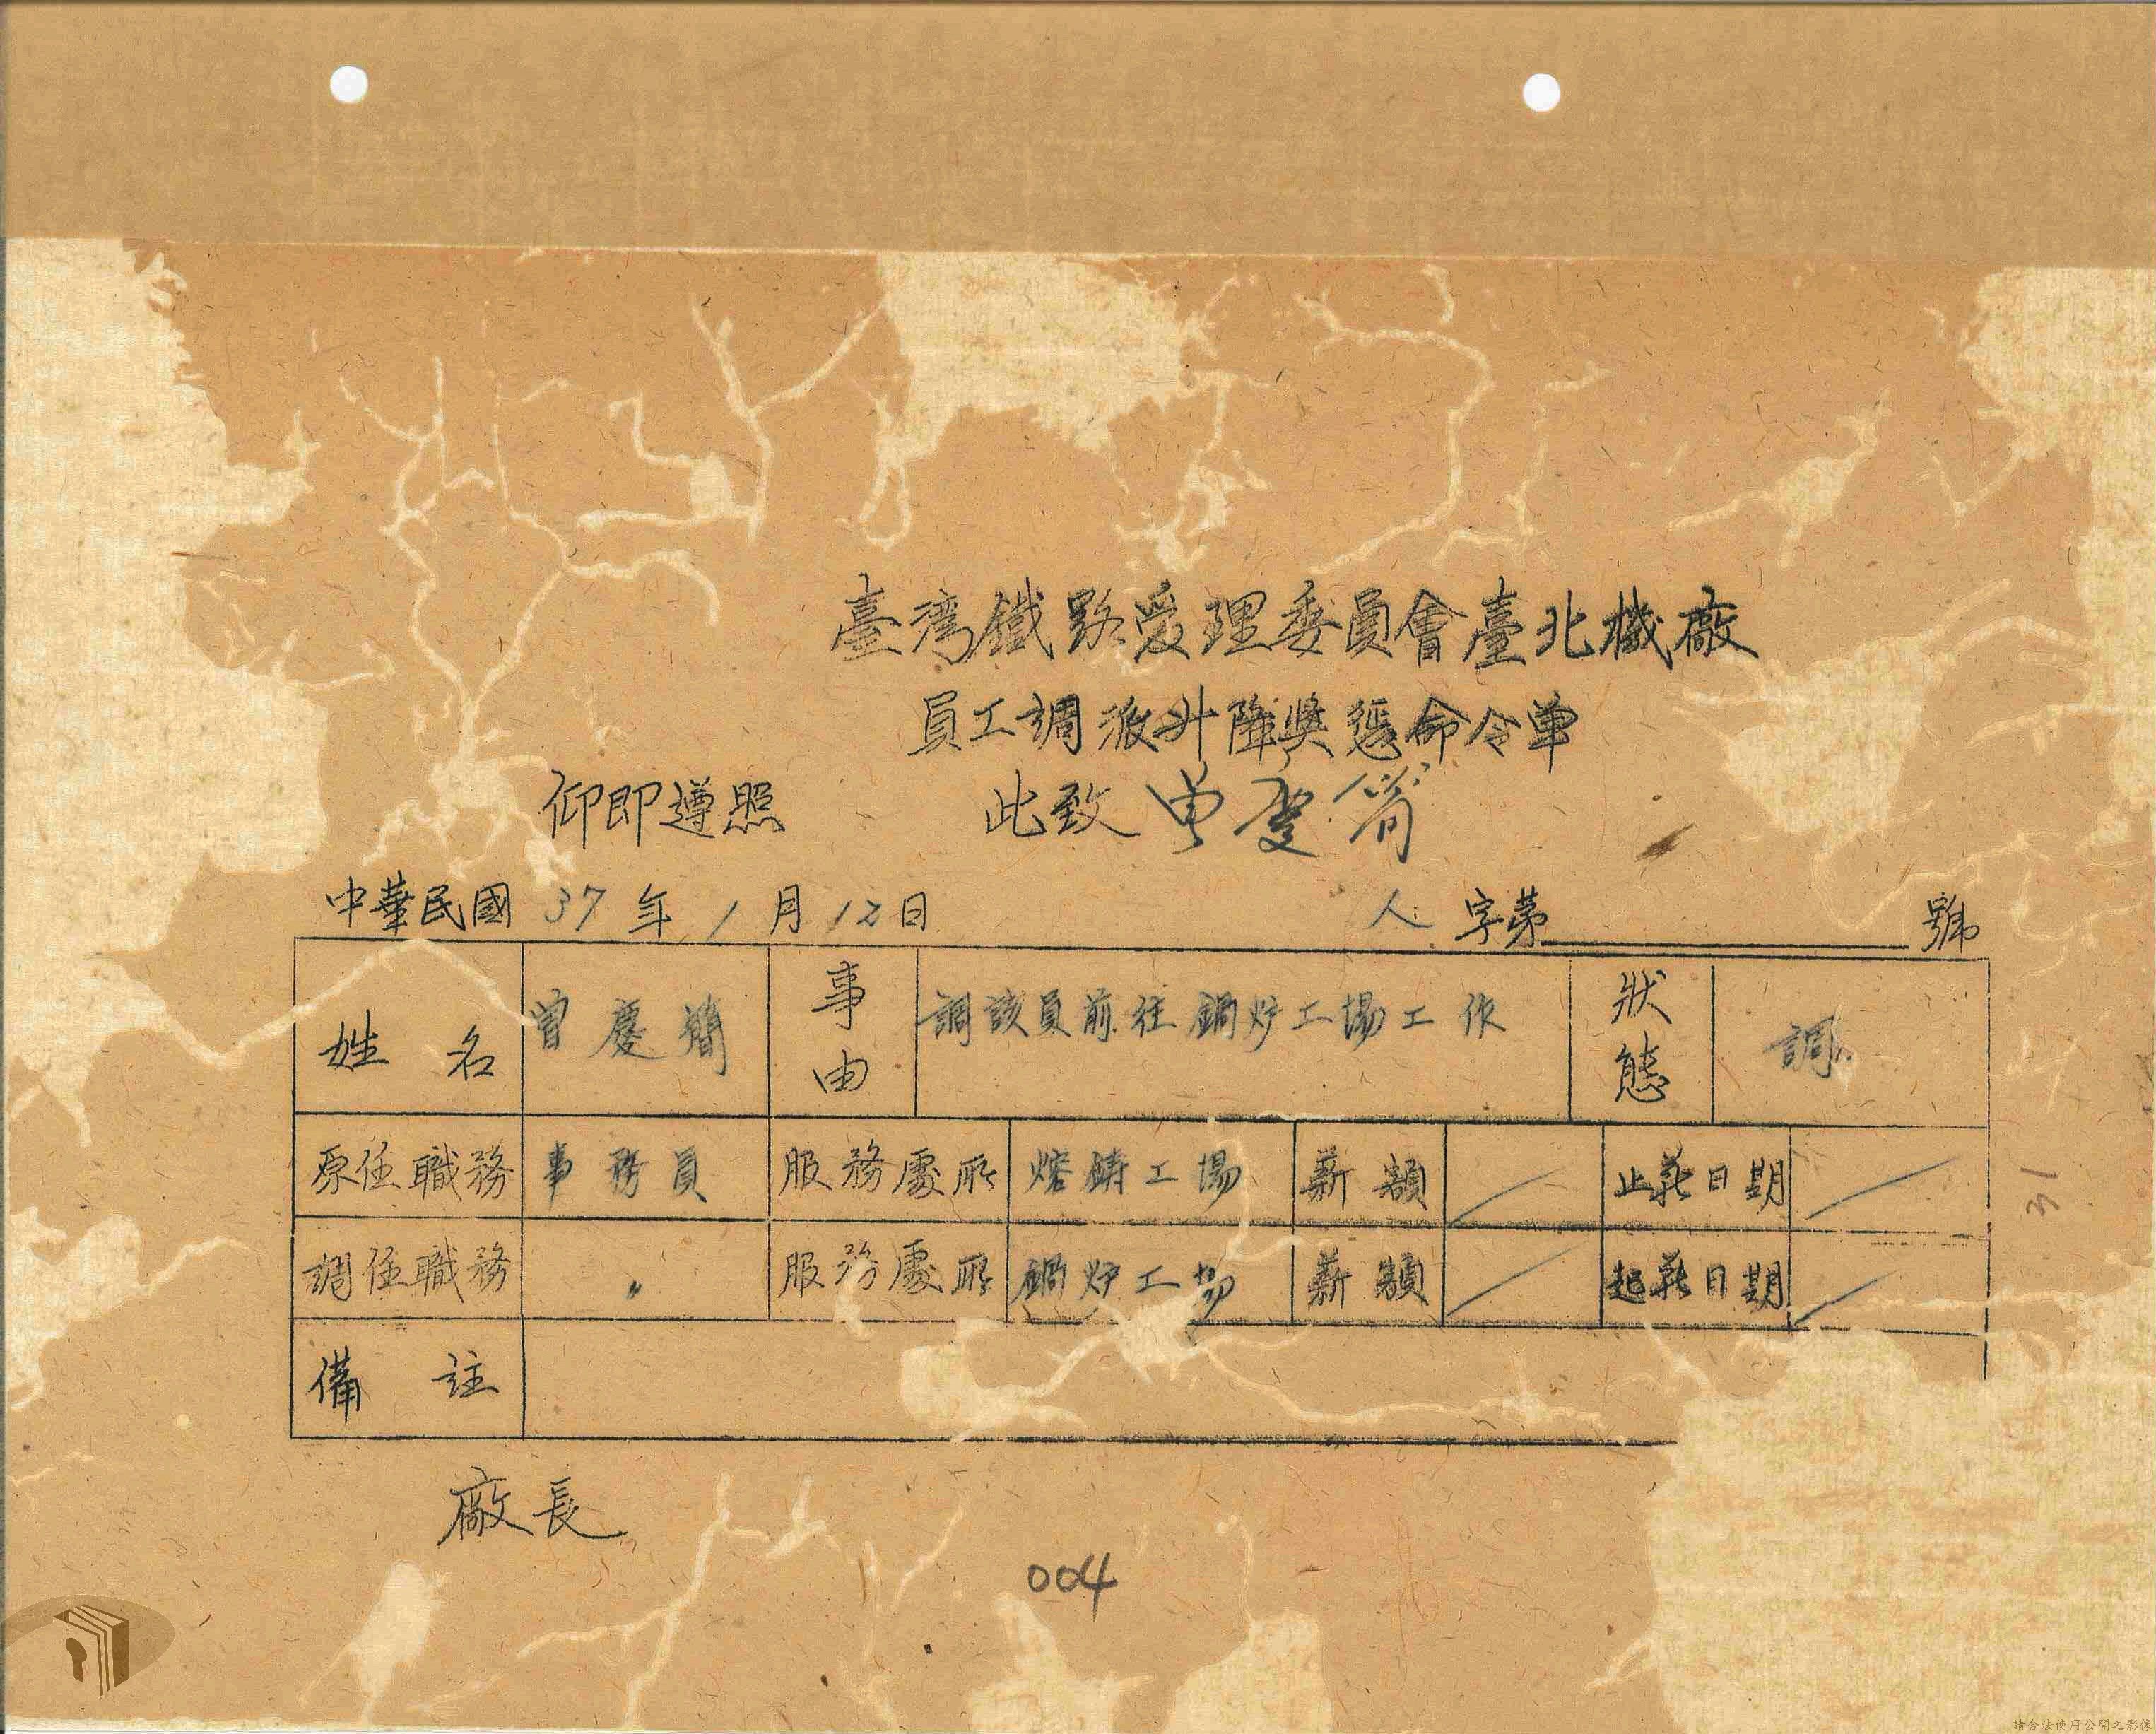 臺灣鐵路管理委員會臺北機廠
員工調派升降獎懲命令單
仰即遵照 此致 曾慶簡
中華民國 37 年 1 月 12 日 人 字第 號
姓名 曾慶簡 事由 調該員前往鍋炉工場工作 狀態 調
原任職務 事務員 服務處所 熔鑄工場 薪額 / 止薪日期 /
調任職務 〃 服務處所 鍋炉工場 薪額 / 起薪日期 /
備註
廠長
004
31
請合法使用公開之影像